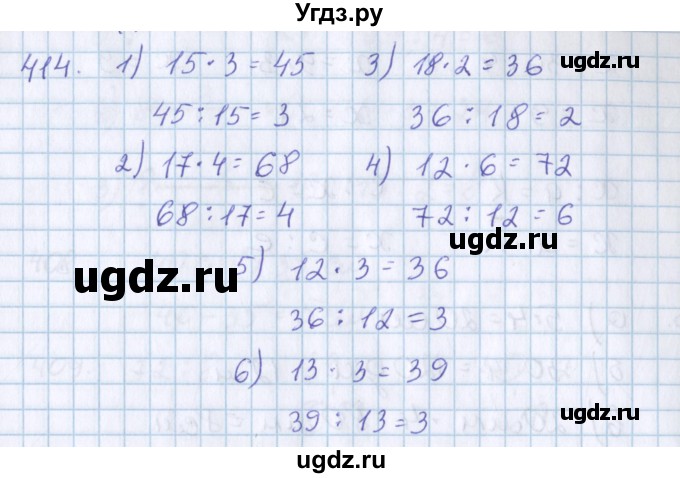 Угдз.ру
414. 1) 15·3=45 3) 18·2=36
ugdz.ru
45:15=3 36:18=2
2) 17·4=68 4) 12·6=72
68:17=4 72:12=6
ugdz.ru
ugdz.ru
5) 12·3=36
36:12=3
6) 13·3=39
39:13=3
ugdz.ru
ugdz.ru